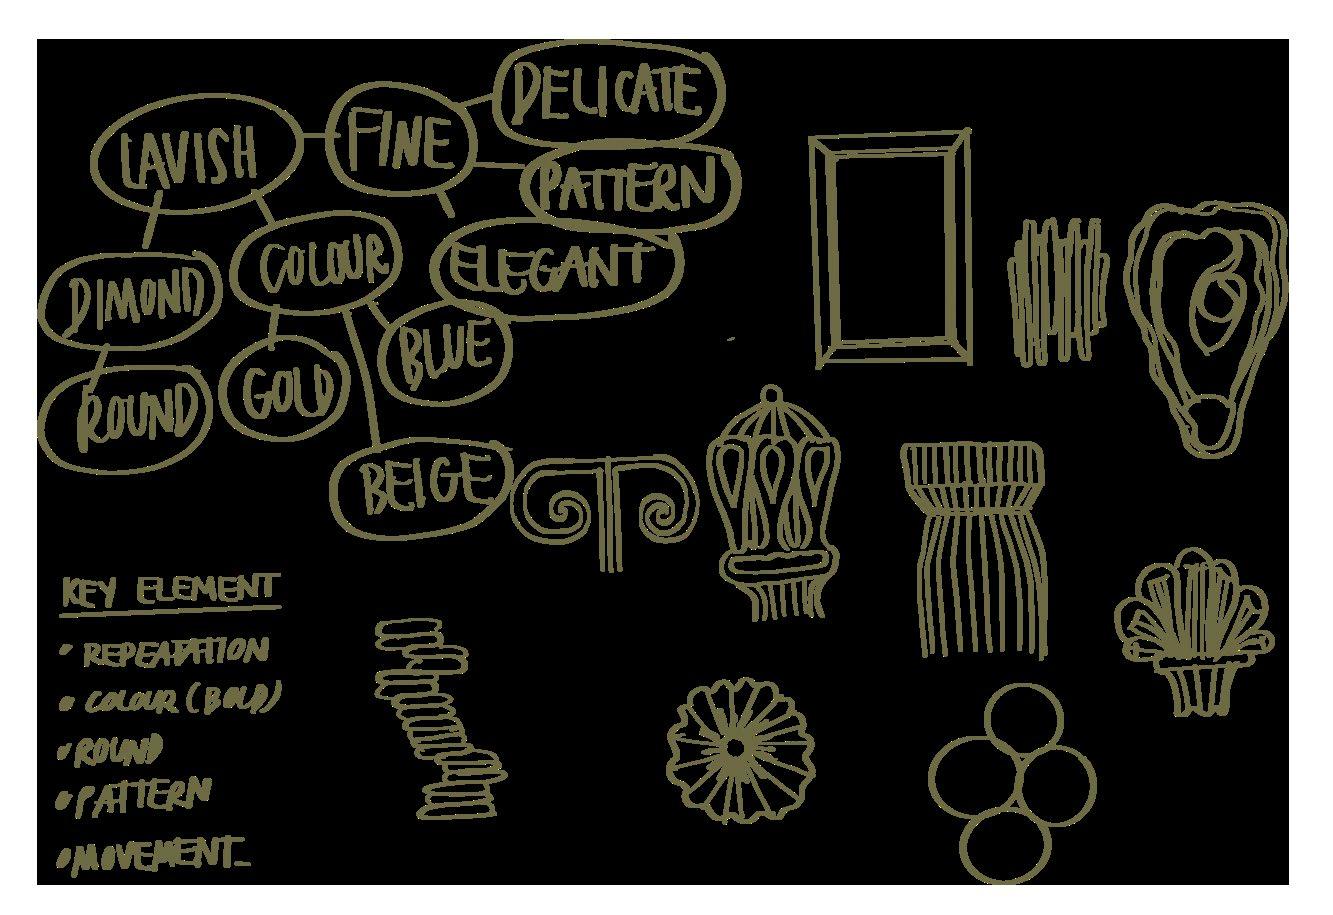 DELICATE
LAVISH
FINE
PATTERN
COLOUR
ELEGANT
DIMOND
BLUE
GOLD
ROUND
BEIGE
KEY ELEMENT
• REPEATATION
• COLOUR (BOLD)
• ROUND
• PATTERN
• MOVEMENT_